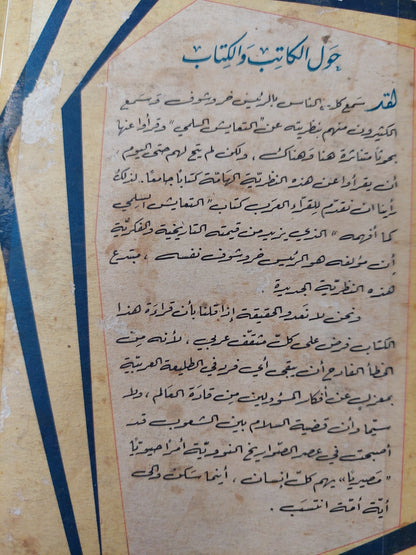 حَول الكاتِب وَالكِتاب
لقد سمع كل الناس بالرئيس خروشوف وسمع
الكثيرون منهم بنظريته عن "التعايش السلمي" وقرأوا عنها
بحوثا متناثرة هنا وهناك، ولكن لم يتح لهم حتى اليوم،
أن يقرأوا عن هذه النظرية الهامة كتابًا جامعًا. لذلك
رأينا ان نقدم للقراء العرب كتاب "التعايش السلمي
كما أفهمه" الذي يزيد من قيمته التاريخية والفكرية
أن مؤلفه هو الرئيس خروشوف نفسه، مبتدع
هذه النظرية الجديدة.
ونحن لا نعدو الحقيقة إذا قلنا بأن قراءة هذا
الكتاب فرض على كل مثقف عربي، لأنه من
الخطأ الفادح أن يبقى أي فرد في الطليعة العربية
بمعزل عن أفكار المسؤولين من قادة العالم، ولا
سيما وأن قضية السلام بين الشعوب قد
أصبحت في عصر الصواريخ النووية أمرا حيويًا
"مصيريًا" يهم كل إنسان، أينما سكن وإلى
أية أمة انتسب.